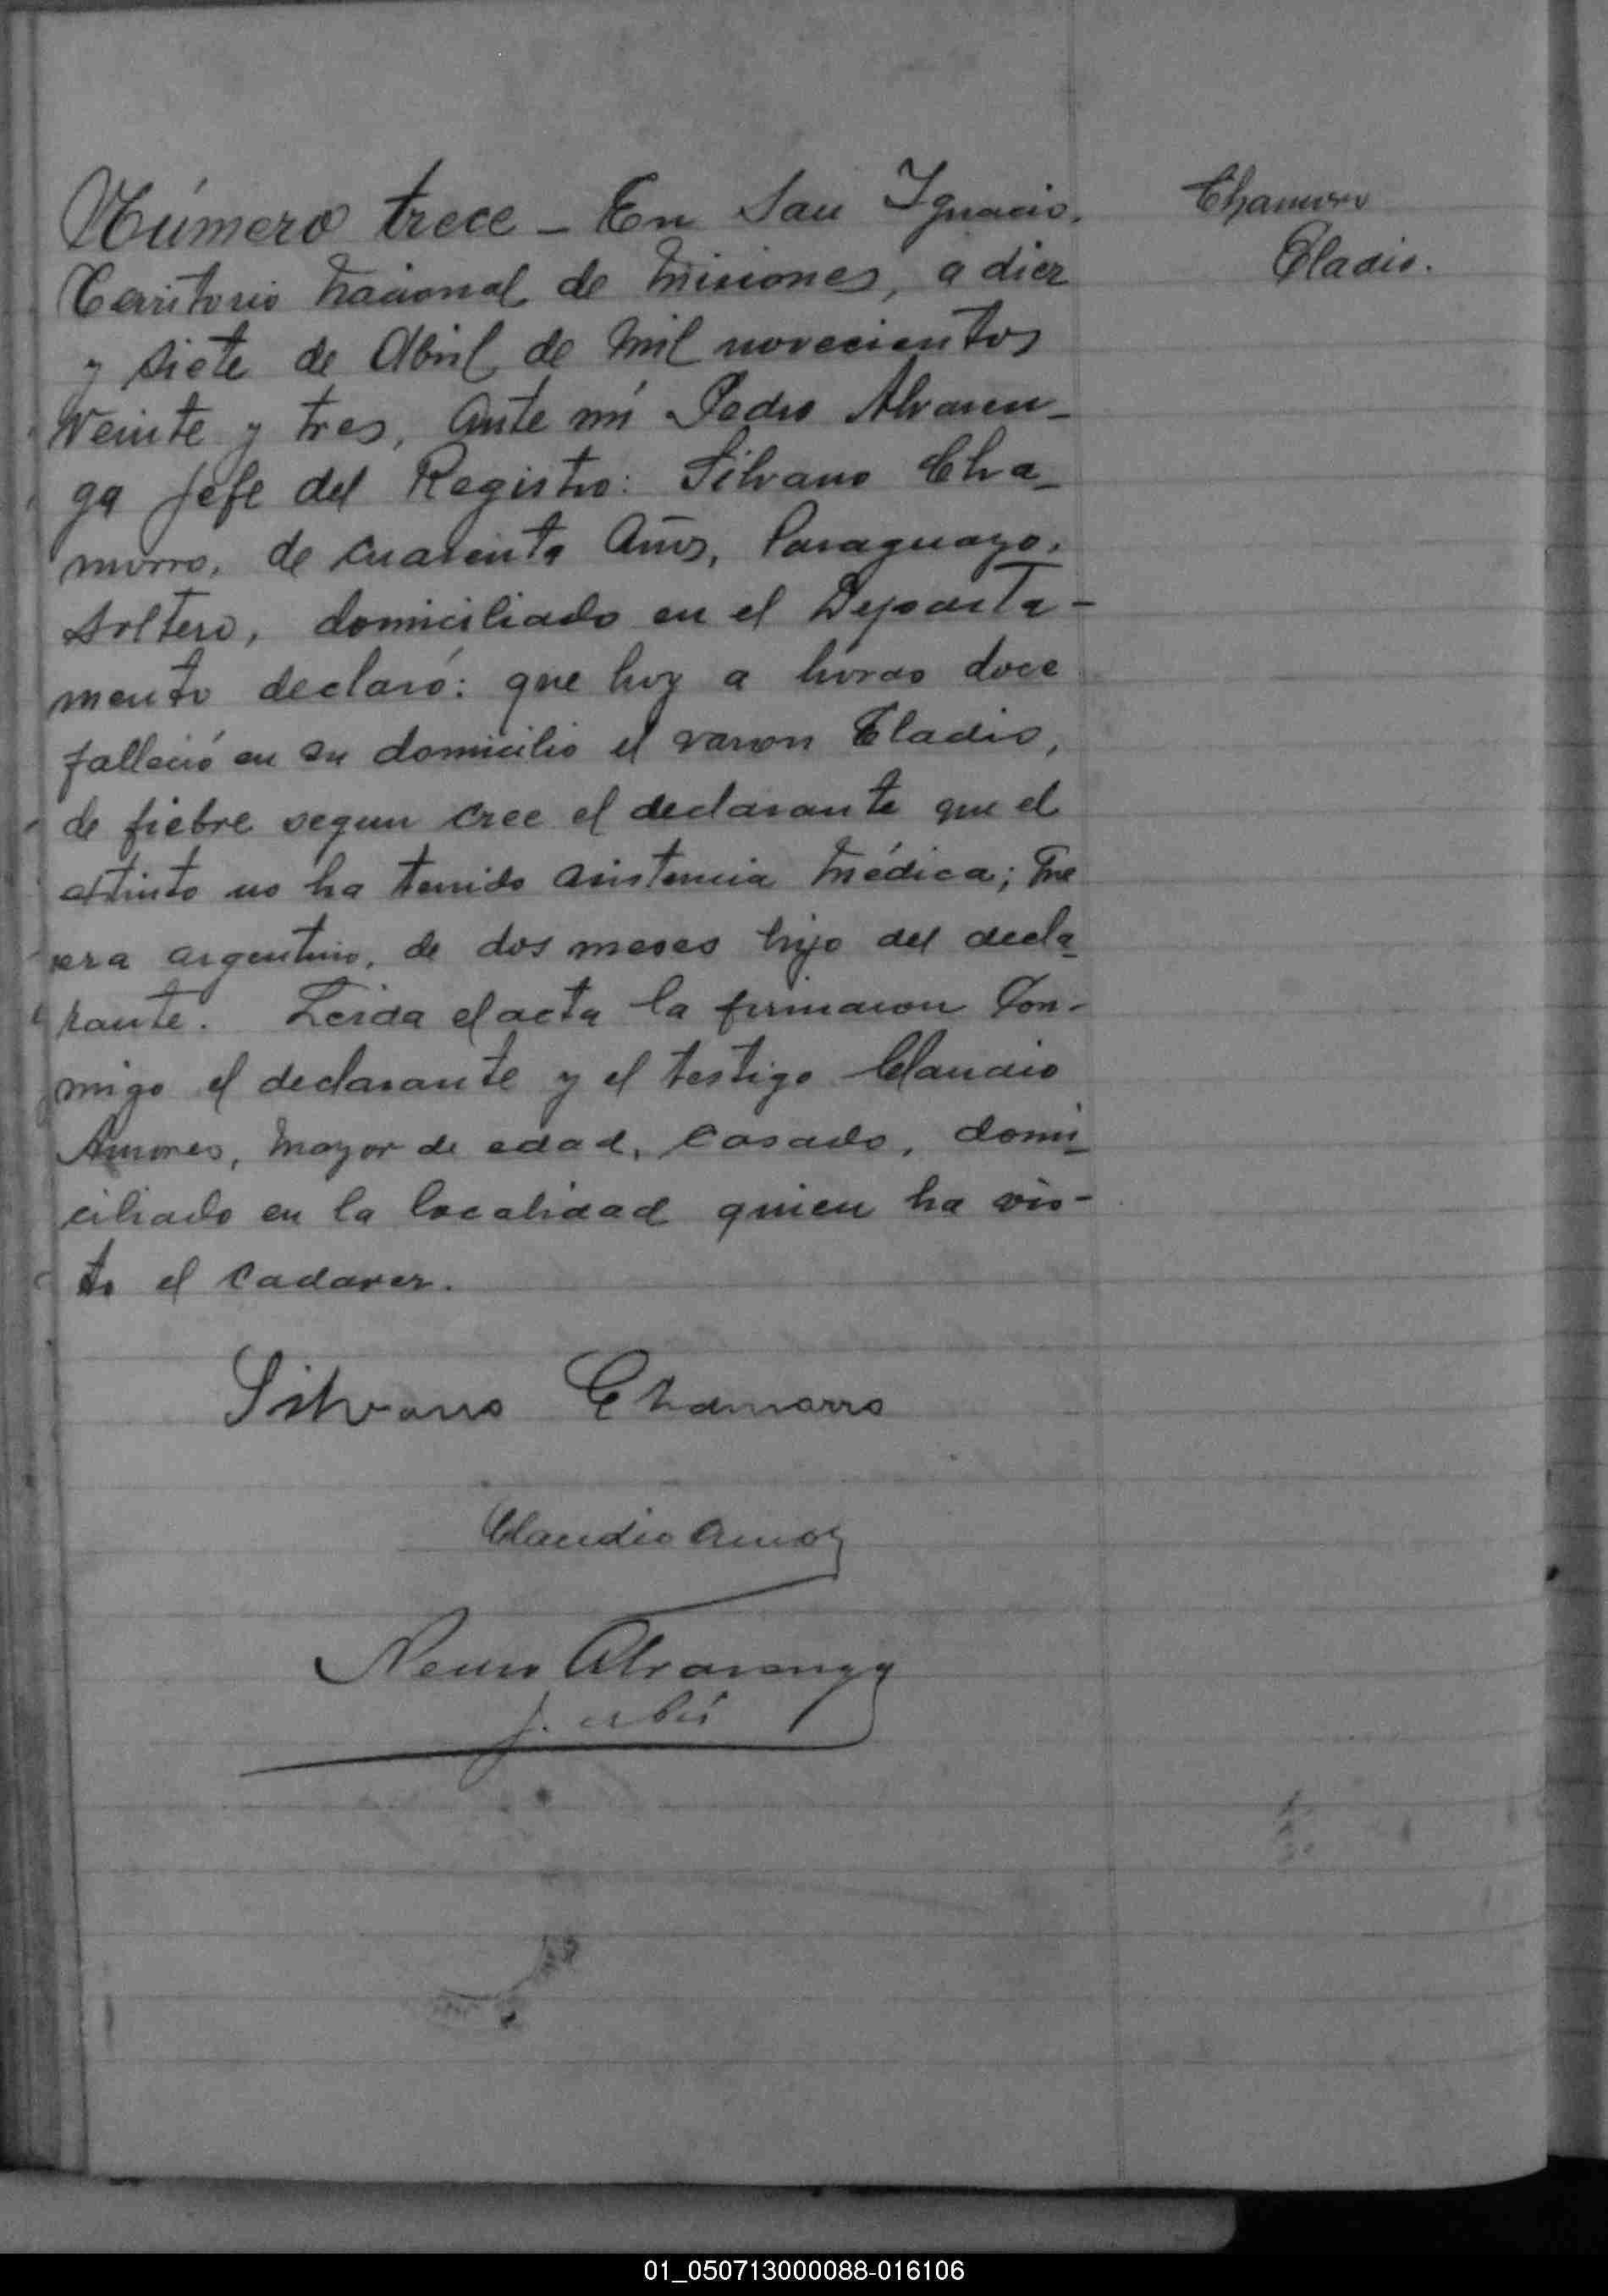 Número trece - En San Ignacio,
Territorio Nacional de Misiones, a diez
y siete de Abril de mil novecientos
veinte y tres, Ante mí Pedro Alvaren-
ga Jefe del Registro: Silvano Cha-
morro, de cuarenta Años, Paraguayo,
soltero, domiciliado en el Departa-
mento declaró: que hoy a horas doce
falleció en su domicilio el varon Eladio,
de fiebre segun cree el declarante que el
extinto no ha tenido asistencia Médica; Que
era argentino, de dos meses hijo del decla-
rante. Leida el acta la firmaron Con-
migo el declarante y el testigo Claudio
Amores, Mayor de edad, Casado, domi-
ciliado en la localidad quien ha vis-
to el cadaver.
Silvano Chamorro
Claudio
Alvarenga
Chamorro
Eladio.
01_050713000088-016106